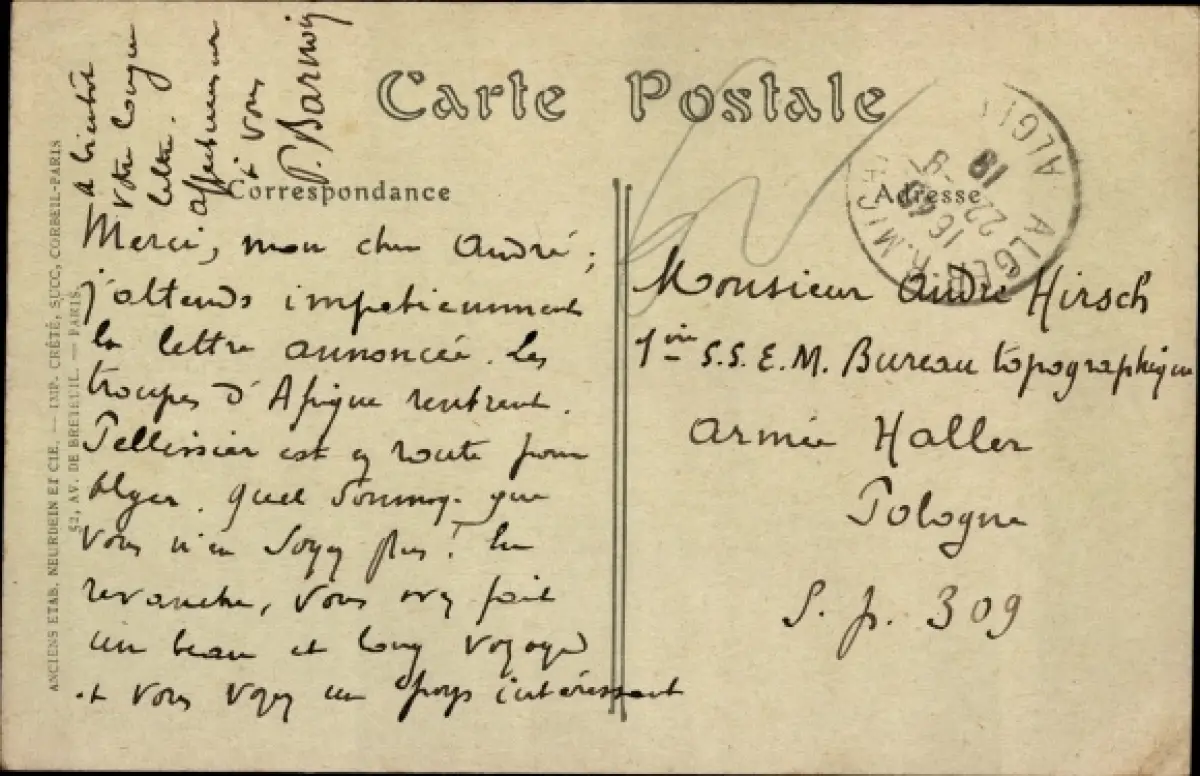 Carte Postale
Correspondance
Adresse
Merci, mon cher André ;
j'attends impatiemment
la lettre annoncée. Les
troupes d'Afrique rentrent.
Pellissier est en route pour
Alger. Quel dommage que
vous n'en soyez plus ! En
revanche, vous avez fait
un beau et long voyage
et vous voyez un pays intéressant
à bientôt
votre longue
lettre.
affectueusement
à vous
P. Barnoy
Monsieur André Hirsch
1ère S.S.E.M. Bureau topographique
Armée Haller
Pologne
S. p. 309
ALGER-R.MICH
ALG
16
22
ANCIENS ETAB. NEURDEIN ET CIE. — IMP. CRÉTÉ, SUCC, CORBEIL-PARIS
52, AV. DE BRETEUIL. — PARIS.